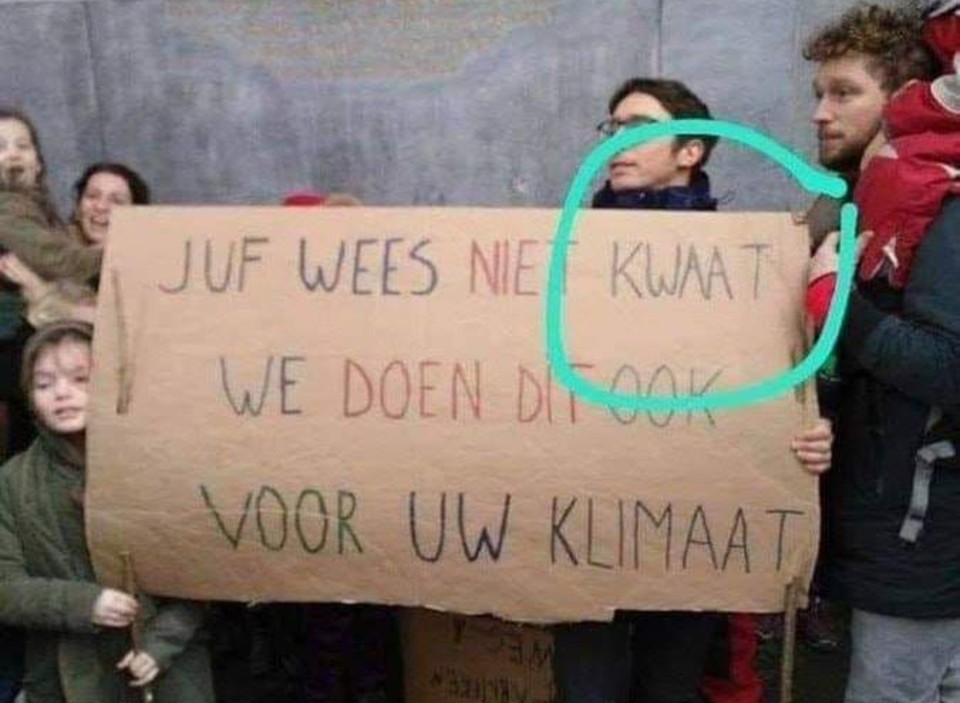 JUF WEES NIET KWAAT
WE DOEN DIT OOK
VOOR UW KLIMAAT